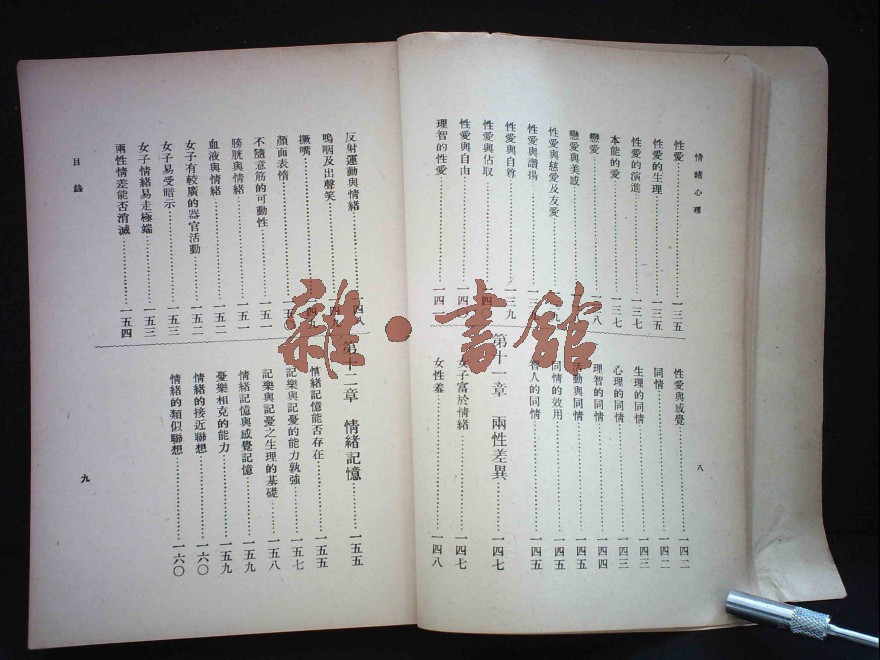 情緒心理
性愛……一三五
性愛的生理……一三五
性愛的演進……一三七
本能的愛……一三七
戀愛
戀愛與美感
性愛與慈愛及友愛
性愛與讚揚
性愛與自尊……一三九
性愛與估取……一四〇
性愛與自由……一四
理智的性愛……一四
性愛與感覺……一四二
同情……一四二
生理的同情……一四三
心理的同情……一四三
理智的同情……一四四
活動與同情……一四五
同情的效用……一四五
智人的同情……一四五
第十一章 兩性差異……一四七
女子富於情緒……一四七
女性羞……一四八
八
反射運動與情緒……一四八
嗚咽及出聲笑
撅嘴
顏面表情
不隨意筋的可動性……一五一
膀胱與情緒……一五一
血液與情緒……一五二
女子有較廣的器官活動……一五二
女子易受暗示……一五三
女子情緒易走極端……一五三
兩性情差能否消滅……一五四
第十二章 情緒記憶……一五五
情緒記憶能否存在……一五五
記樂與記憂的能力孰強……一五七
記樂與記憂之生理的基礎……一五八
情緒記憶與感覺記憶……一五九
憂樂相克的能力……一五九
情緒的接近聯想……一六〇
情緒的類似聯想……一六〇
目錄
九
雜·書館